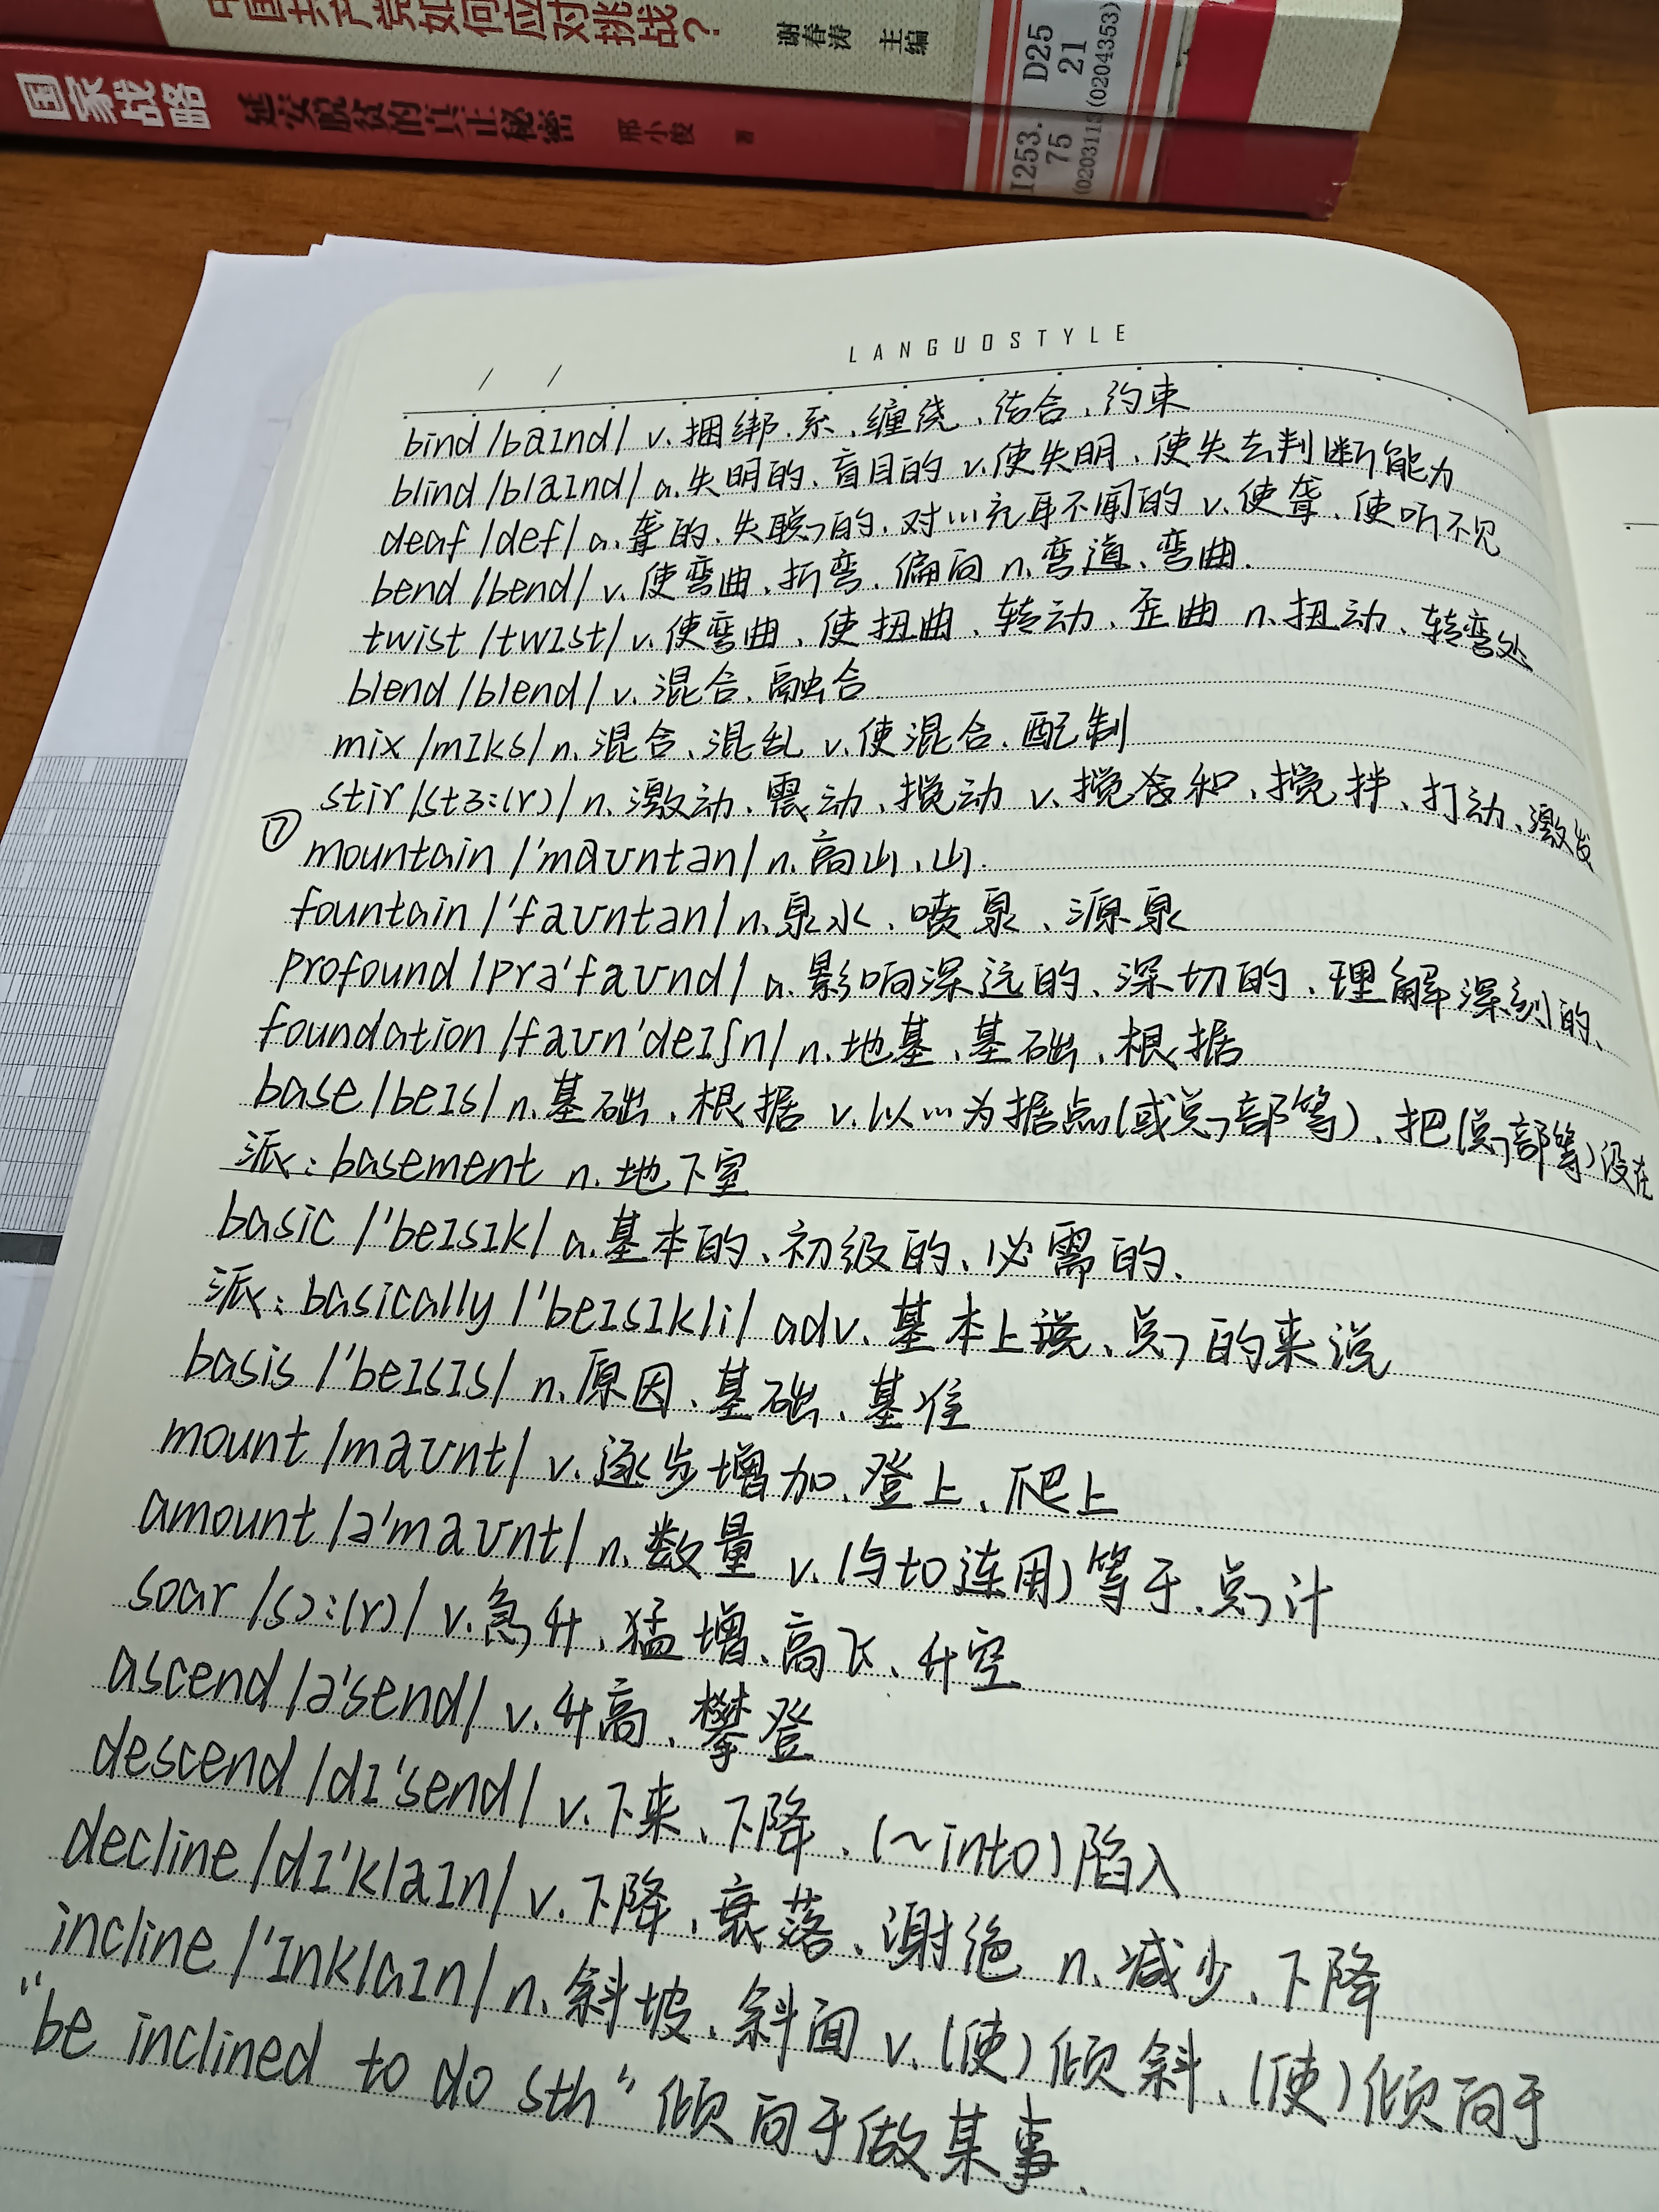 中国共产党如何应对挑战? 谢春涛 主编
D25
21
(0204353)
国家战略 延安脱贫的真正秘密 邢小俊 著
I253.
75
(0203113)
LANGUOSTYLE
/ /
bind /baɪnd/ v.捆绑、系、缠绕、结合、约束
blind /blaɪnd/ a.失明的、盲目的 v.使失明、使失去判断能力
deaf /def/ a.聋的、失聪的、对…充耳不闻的 v.使聋、使听不见
bend /bend/ v.使弯曲、折弯、偏向 n.弯道、弯曲.
twist /twɪst/ v.使弯曲、使扭曲、转动、歪曲 n.扭动、转弯处
blend /blend/ v.混合、融合
mix /mɪks/ n.混合、混乱 v.使混合、配制
stir /stɜ:(r)/ n.激动、震动、搅动 v.搅和、搅拌、打动、激发
⑦ mountain /'maʊntən/ n.高山、山.
fountain /'faʊntən/ n.泉水、喷泉、源泉
profound /prə'faʊnd/ a.影响深远的、深切的、理解深刻的、
foundation /faʊn'deɪʃn/ n.地基、基础、根据
base /beɪs/ n.基础、根据 v.以…为据点(或总部等)、把(总部等)设在
派:basement n.地下室
basic /'beɪsɪk/ a.基本的、初级的、必需的、
派:basically /'beɪsɪkli/ adv.基本上说、总的来说
basis /'beɪsɪs/ n.原因、基础、基准
mount /maʊnt/ v.逐步增加、登上、爬上
amount /ə'maʊnt/ n.数量 v.(与to连用)等于、总计
soar /sɔ:(r)/ v.急升、猛增、高飞、升空
ascend /ə'send/ v.升高、攀登
descend /dɪ'send/ v.下来、下降、(~into)陷入
decline /dɪ'klaɪn/ v.下降、衰落、谢绝 n.减少、下降
incline /'ɪnklaɪn/ n.斜坡、斜面 v.(使)倾斜、(使)倾向于
"be inclined to do sth" 倾向于做某事.